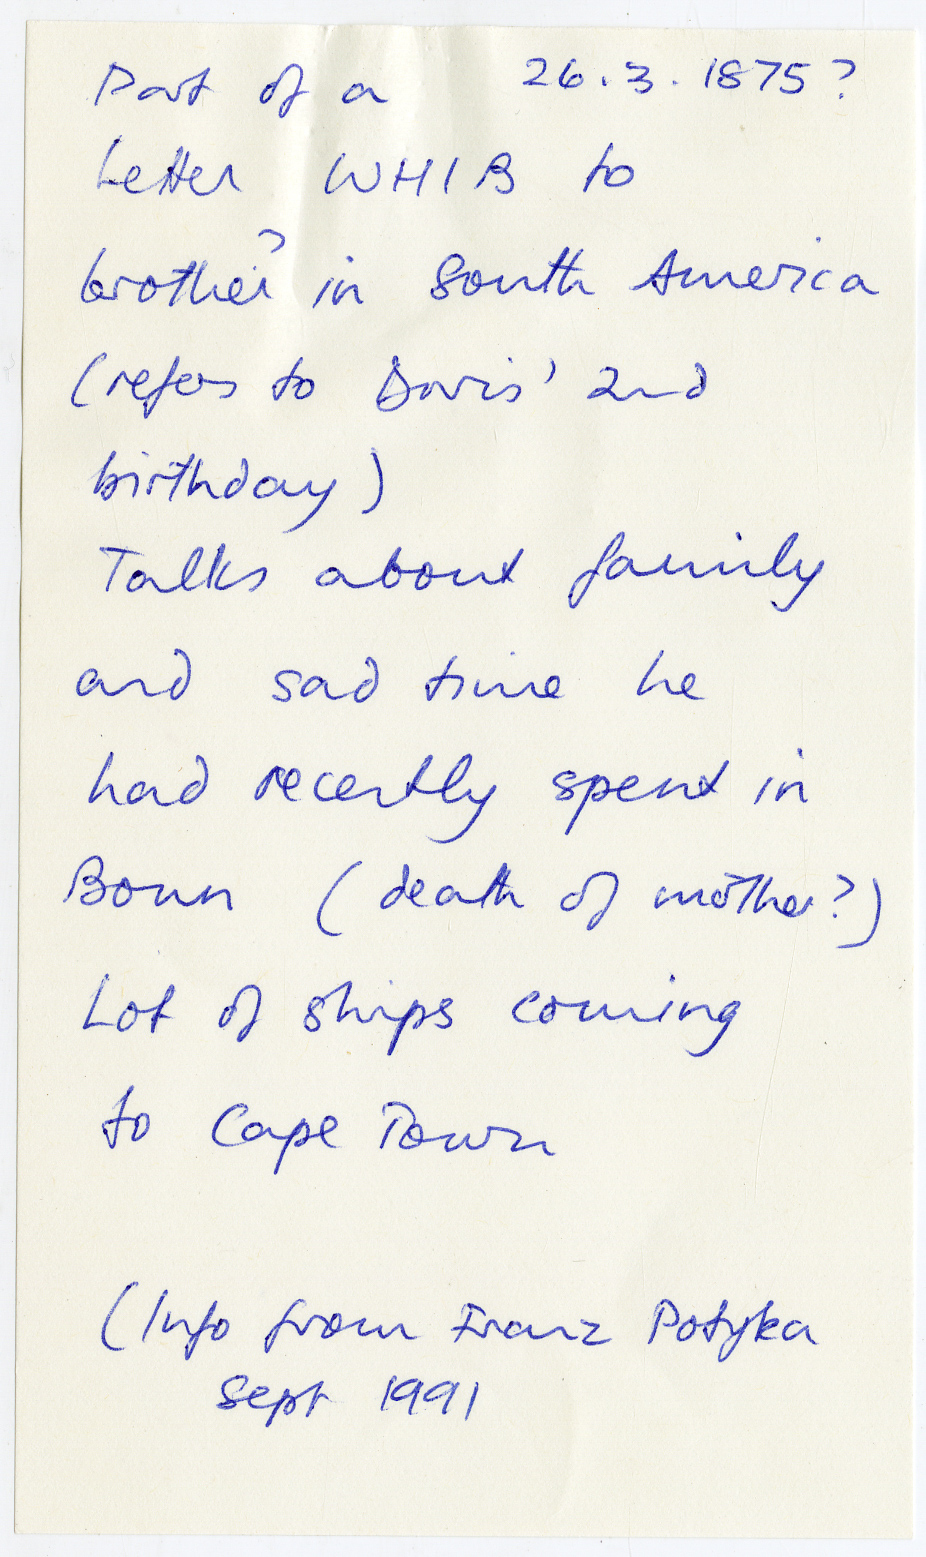 Part of a 26.3.1875?
Letter WHIB to
brother? in South America
(refers to Doris' 2nd
birthday)
Talks about family
and sad time he
had recently spent in
Bonn (death of mother?)
Lot of ships coming
to Cape Town
(Info from Franz Potyka
Sept 1991